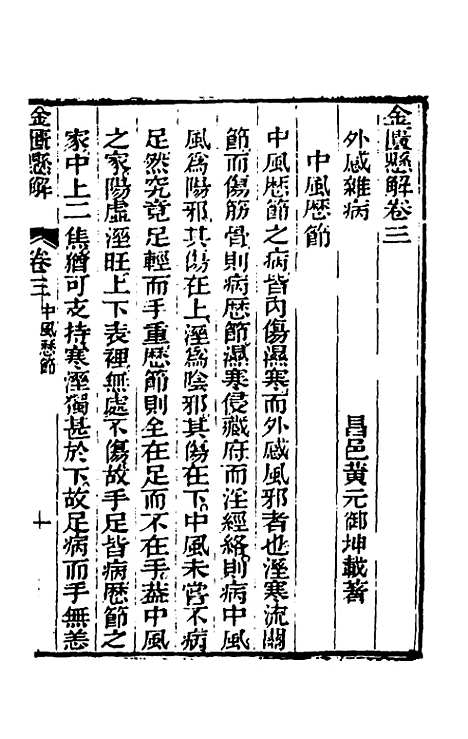 金匱懸解卷三
外感雜病　昌邑黃元御坤載著
中風歷節
中風歷節之病皆內傷濕寒而外感風邪者也溼寒流關
節而傷筋骨則病歷節濕寒侵藏府而淫經絡則病中風
風爲陽邪其傷在上溼爲陰邪其傷在下中風未嘗不病
足然究竟足輕而手重歷節則全在足而不在手葢中風
之家陽虛溼旺上下表裡無處不傷故手足皆病歷節之
家中上二焦猶可支持寒溼獨甚於下故足病而手無恙
金匱懸解　卷三　中風歷節　十